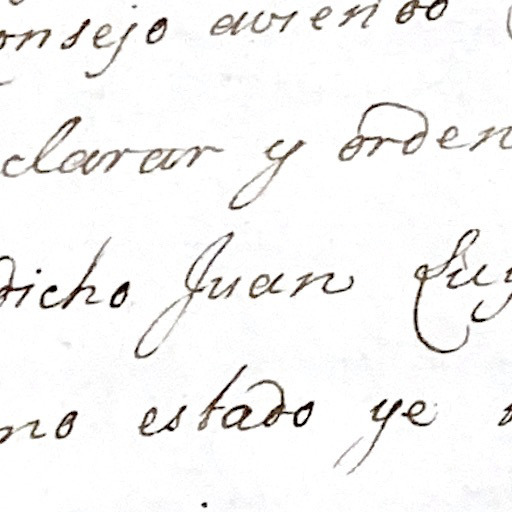 onsejo aviendo
clarar y orden
dicho Juan Luy
no estado ye